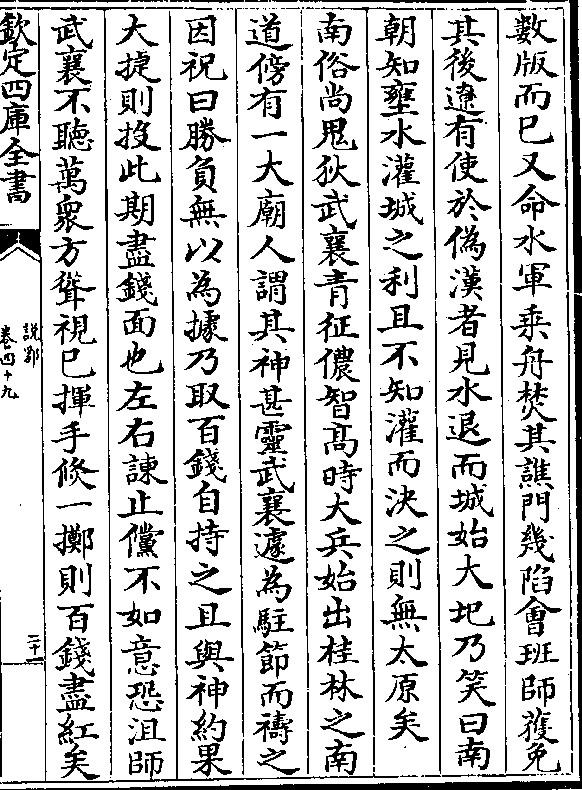 數版而已又命水軍乘舟焚其譙門幾陷會班師獲免
其後遼有使於偽漢者見水退而城始大圮乃笑曰南
朝知壅水灌城之利且不知灌而決之則無太原矣
南俗尚鬼狄武襄青征儂智高時大兵始出桂林之南
道傍有一大廟人謂其神甚靈武襄遽為駐節而禱之
因祝曰勝負無以為據乃取百錢自持之且與神約果
大捷則投此期盡錢面也左右諫止儻不如意恐沮師
武襄不聽萬衆方聳視已揮手倐一擲則百錢盡紅矣
欽定四庫全書
說郛
卷四十九
二十一